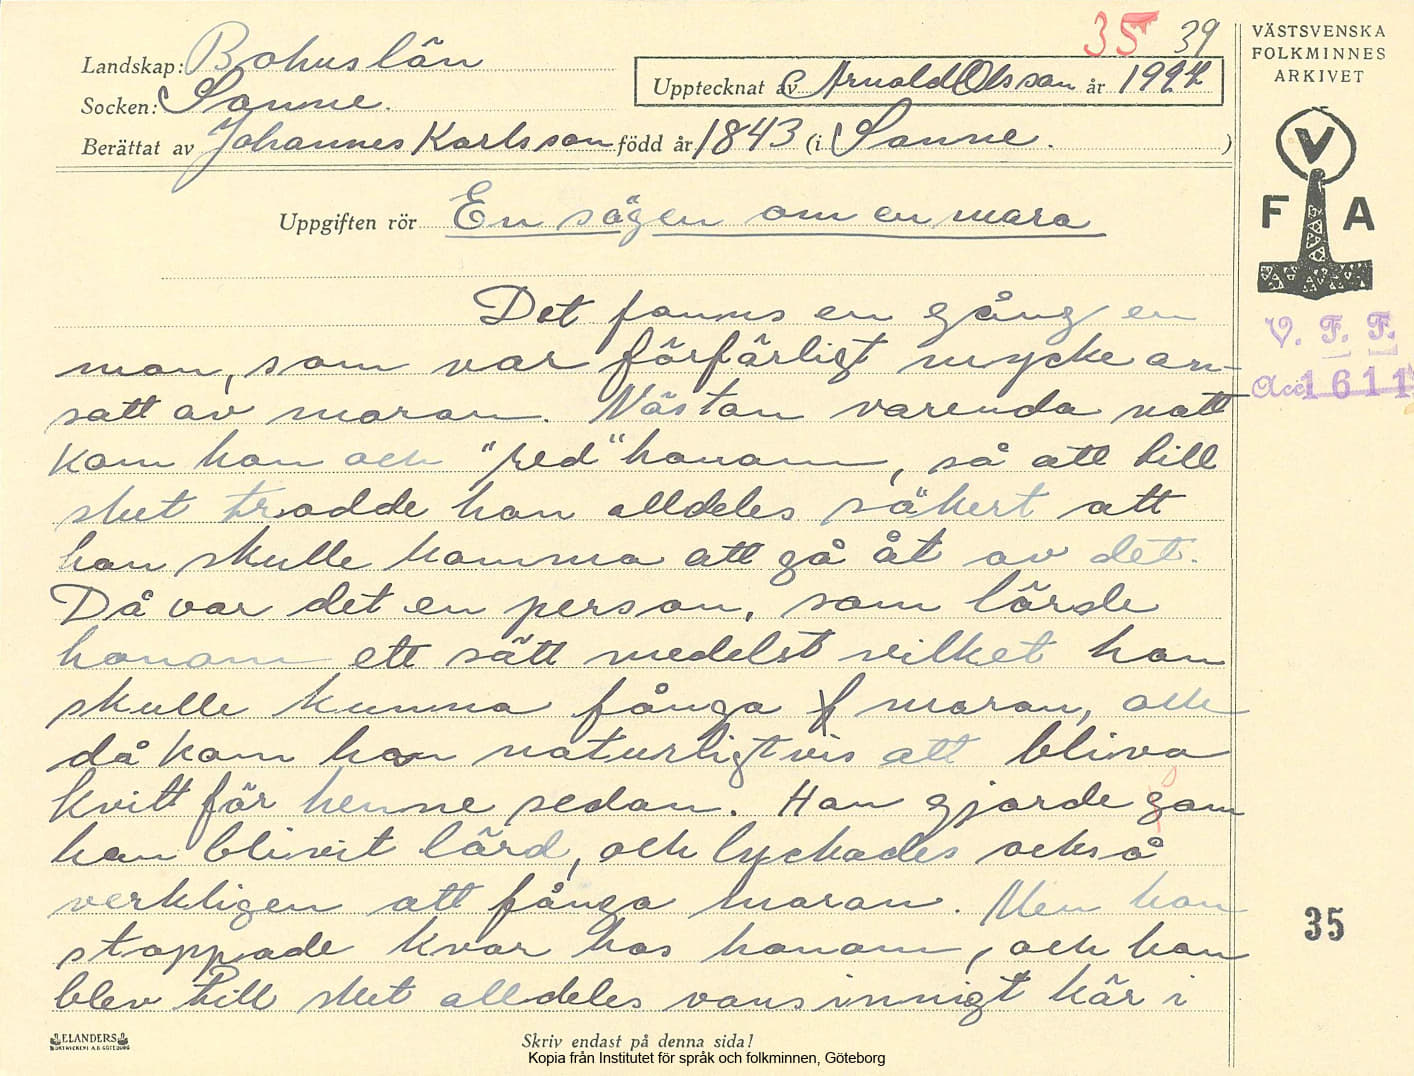 35 39
Landskap: Bohuslän
Socken: Sanne.
Upptecknat av Arnold Olsson år
Berättat av Johannes Karlsson född år 1843 (i Sanne. )
Uppgiften rör En sägen om en mara
VÄSTSVENSKA
FOLKMINNES
ARKIVET
V
F A
V. F. F.
Acc 1611
Det fanns en gång en
man, som var förfärligt mycke an-
satt av maran. Nästan varenda natt
kom hon och "red" honom, så att till
slut trodde han alldeles säkert att
han skulle komma att gå åt av det.
Då var det en person, som lärde
honom ett sätt medelst vilket han
skulle kunna fånga maran, och
då kom han naturligtvis att bliva
kvitt för henne sedan. Han gjorde som
han blivit lärd, och lyckades också
verkligen att fånga maran. Men hon
stoppade kvar hos honom, och han
blev till slut alldeles vansinnigt kär i
35
ELANDERS
BOKTRYCKERI A.B. GÖTEBORG
Skriv endast på denna sida!
Kopia från Institutet för språk och folkminnen, Göteborg